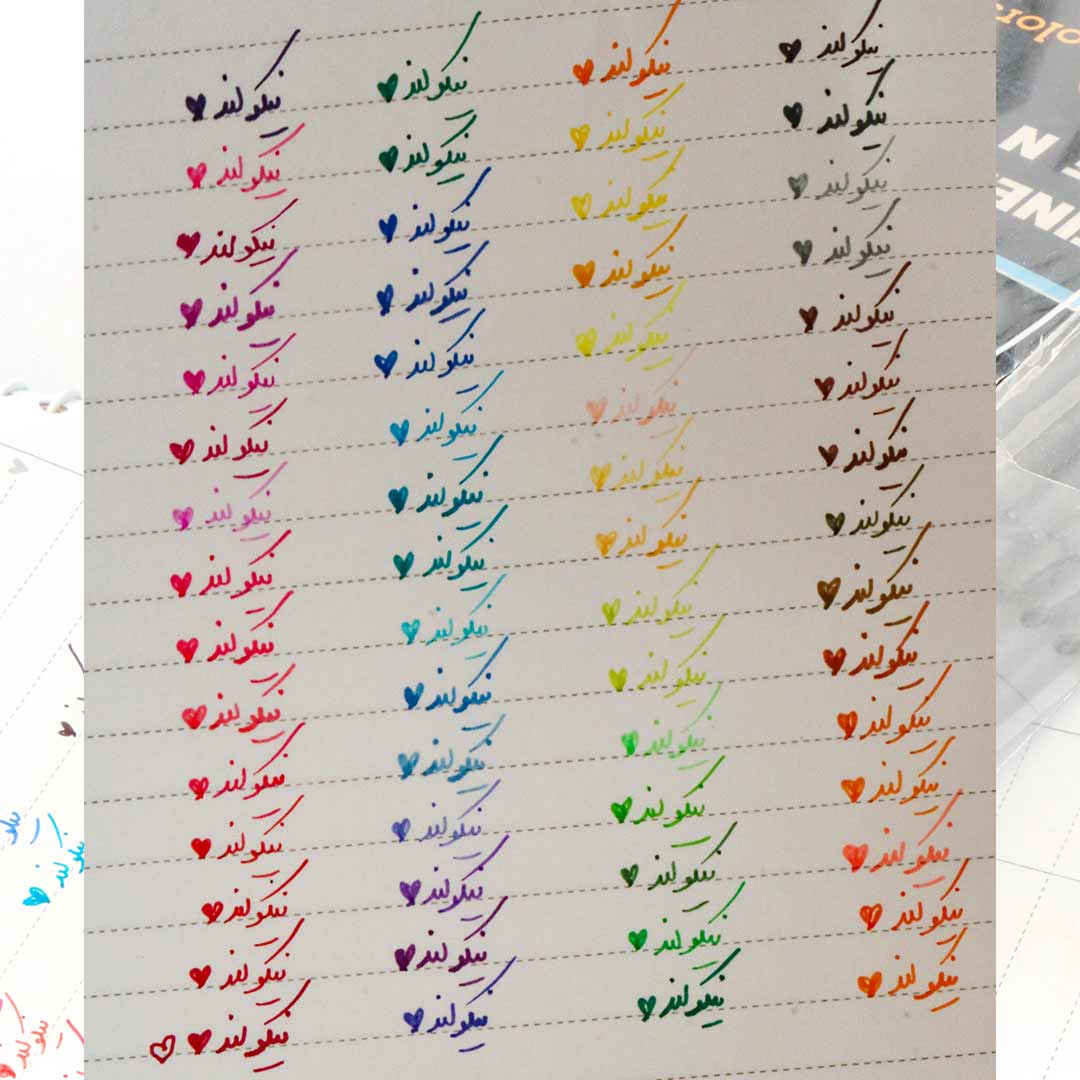 نیکو لند نیکو لند نیکو لند نیکو لند
نیکو لند نیکو لند نیکو لند نیکو لند
نیکو لند نیکو لند نیکو لند نیکو لند
نیکو لند نیکو لند نیکو لند نیکو لند
نیکو لند نیکو لند نیکو لند نیکو لند
نیکو لند نیکو لند نیکو لند نیکو لند
نیکو لند نیکو لند نیکو لند نیکو لند
نیکو لند نیکو لند نیکو لند نیکو لند
نیکو لند نیکو لند نیکو لند نیکو لند
نیکو لند نیکو لند نیکو لند نیکو لند
نیکو لند نیکو لند نیکو لند نیکو لند
نیکو لند نیکو لند نیکو لند نیکو لند
نیکو لند نیکو لند نیکو لند نیکو لند
نیکو لند نیکو لند نیکو لند نیکو لند
نیکو لند نیکو لند نیکو لند نیکو لند